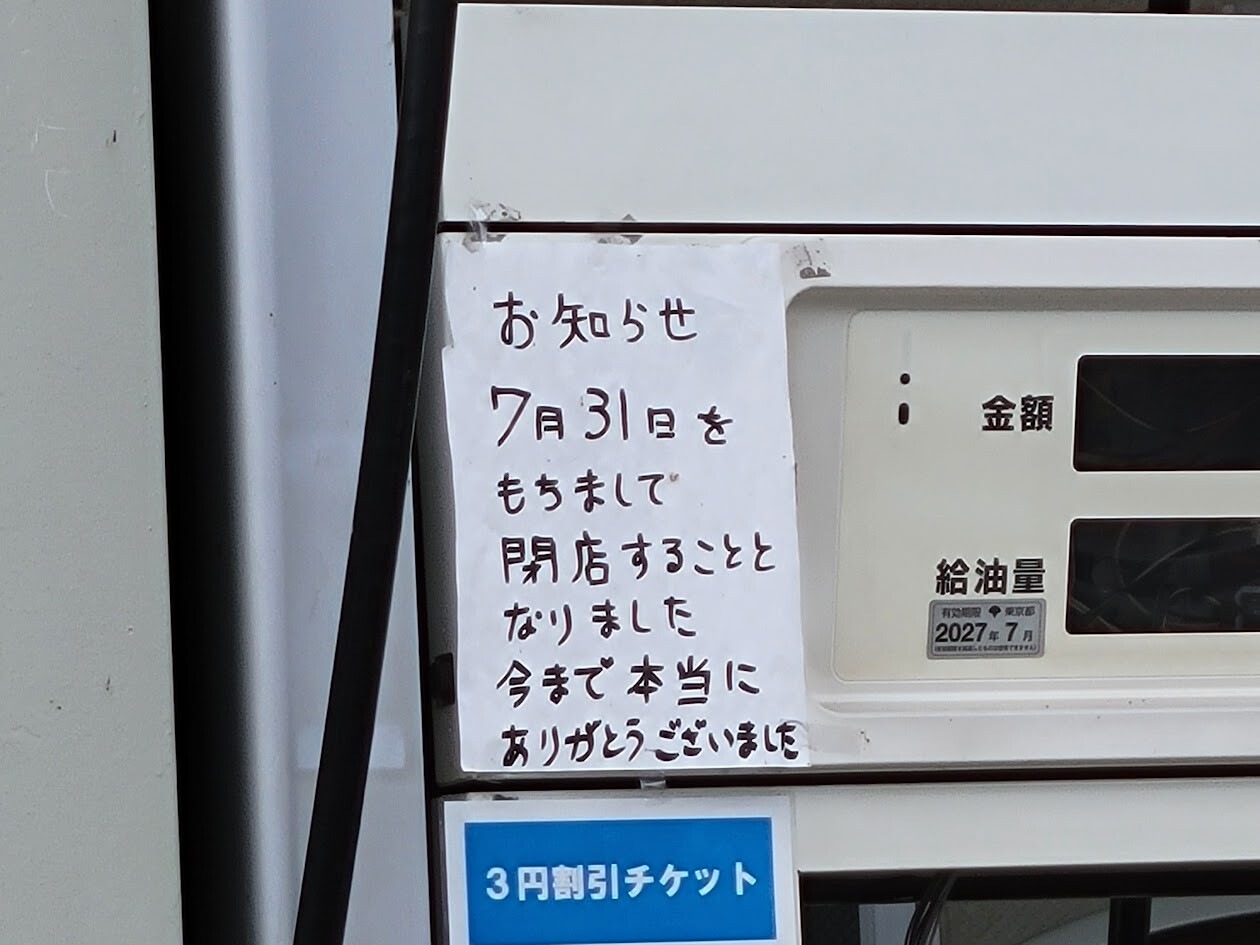 お知らせ
7月31日を
もちまして
閉店することと
なりました
今まで本当に
ありがとうございました
金額
給油量
有効期限 東京都
2027年7月
3円割引チケット